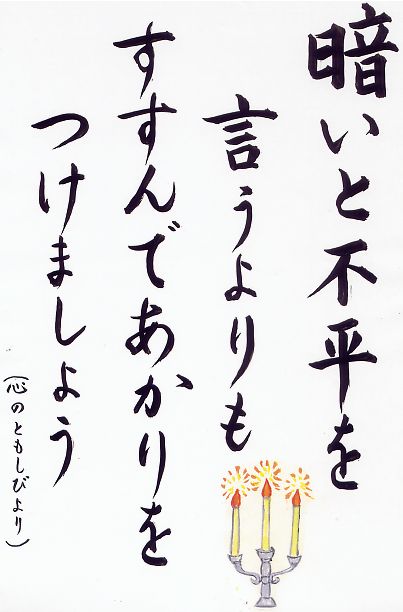 暗いと不平を
言うよりも
すすんであかりを
つけましょう
(心のともしびより)